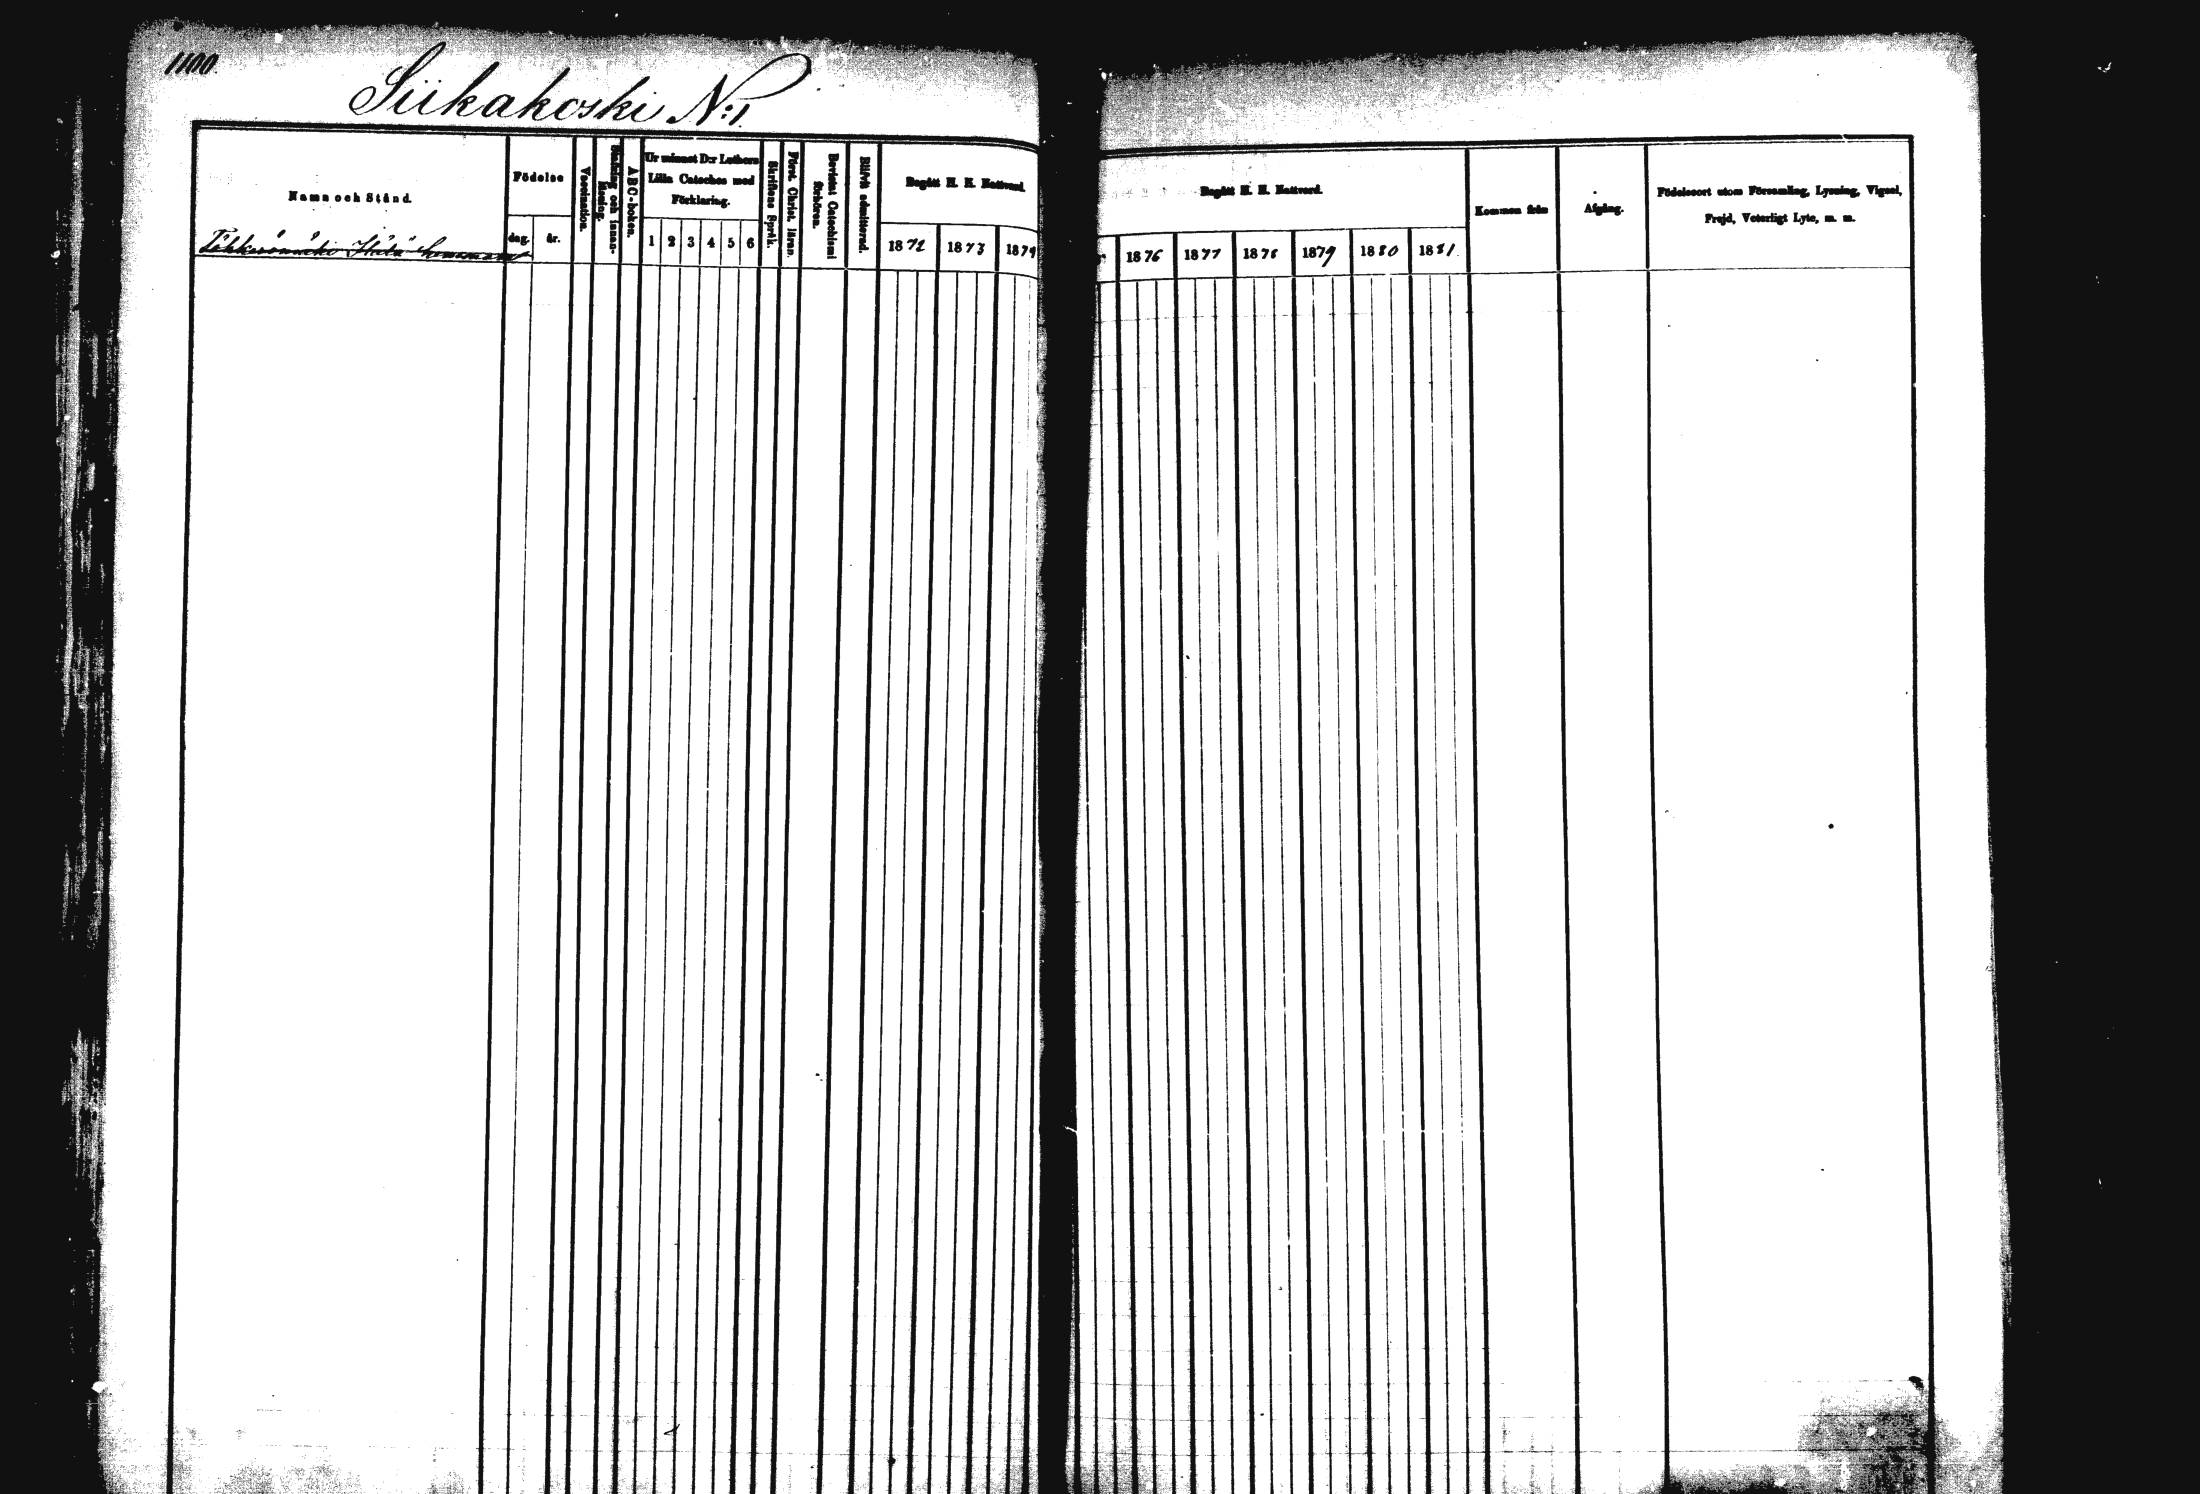 1100.
Siikakoski N:1
Namn och Stånd.
Födelse
dag.
år.
Vaccination.
Stafning och innan-
läsning.
ABC-boken.
Ur minnet D:r Luthers
Lilla Cateches med
Förklaring.
1 2 3 4 5 6
Skriftens Språk.
Först. Christ. läran.
Bevistat Catechismi
förhören.
Blifvit admitterad.
Begått H. H. Nattvard.
1872 1873 1874
Begått H. H. Nattvard.
1876 1877 1878 1879 1880 1881.
Kommen från
Afgång.
Födelseort utom Församling, Lysning, Vigsel,
Frejd, Veterligt Lyte, m. m.